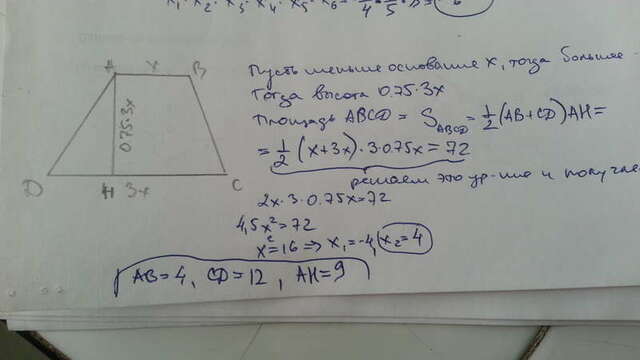 A x B
0.75·3x
D H 3x C
Пусть меньше основание x, тогда больше -
Тогда высота 0.75·3x
Площадь ABCD = S ABCD = 1/2 (AB+CD) AH =
= 1/2 (x+3x)·3·0.75x = 72
решаем это ур-ние и получае
2x·3·0.75x=72
4,5x²=72
x²=16 => x₁=-4, x₂=4
AB=4, CD=12, AH=9